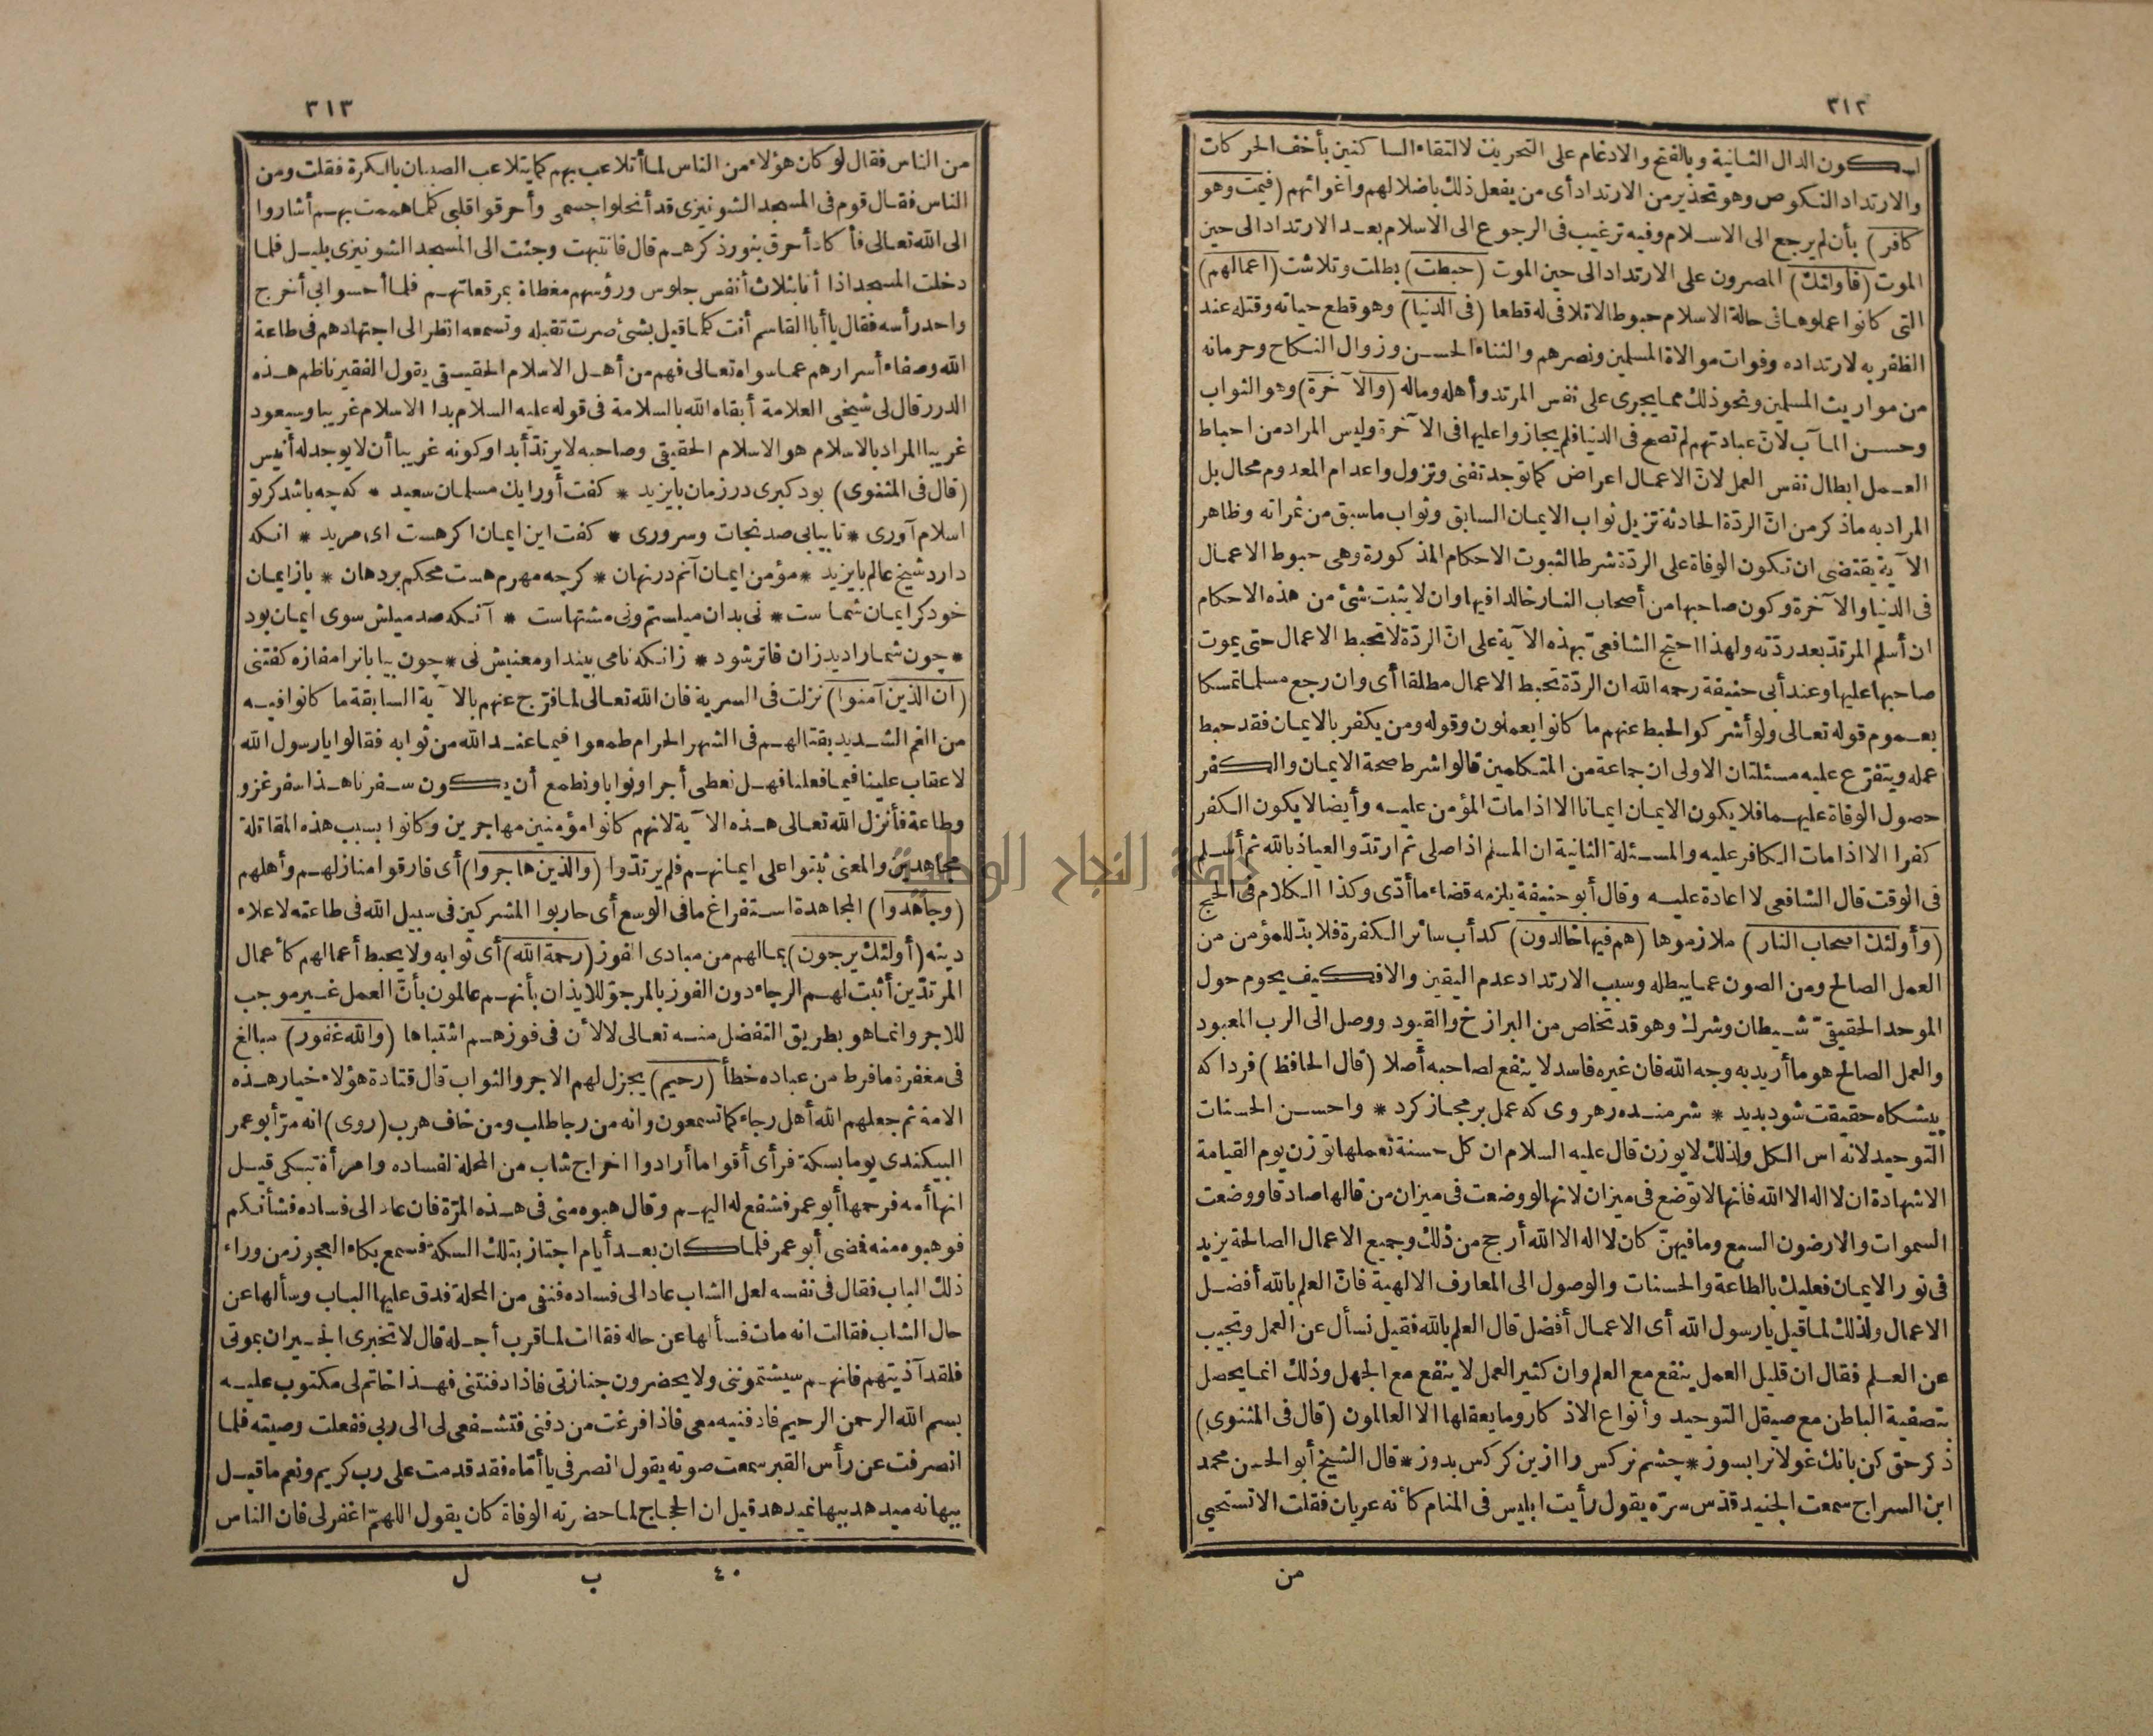 ٣١٢
لسكون الدال الثانية وبالفتح والادغام على التحريك لالتقاء الساكنين بأخف الحركات
والارتداد النكوص وهو تحذير من الارتداد أى من يفعل ذلك باضلالهم واغوائهم (فيمت وهو
كافر) بأن لم يرجع الى الاسلام وفيه ترغيب فى الرجوع الى الاسلام بعد الارتداد الى حين
الموت (فاولئك) المصرون على الارتداد الى حين الموت (حبطت) بطلت وتلاشت (اعمالهم)
التى كانوا عملوها فى حالة الاسلام حبوطا لا تلافى له قطعا (فى الدنيا) وهو قطع حياته وقتله عند
الظفر به لارتداده وفوات موالاة المسلمين ونصرهم والثناء الحسن وزوال النكاح وحرمانه
من مواريث المسلمين ونحو ذلك مما يجرى على نفس المرتد وأهله وماله (والآخرة) وهو الثواب
وحسن المآب لانّ عبادتهم لم تصح فى الدنيا فلم يجازوا عليها فى الآخرة وليس المراد من احباط
العمل ابطال نفس العمل لانّ الاعمال اعراض كما توجد تفنى وتزول واعدام المعدوم محال بل
المراد به ماذكر من انّ الردّة الحادثة تزيل ثواب الايمان السابق وثواب ما سبق من ثمراته وظاهر
الآية يقتضى ان تكون الوفاة على الردّة شرطا لثبوت الاحكام المذكورة وهى حبوط الاعمال
فى الدنيا والآخرة وكون صاحبها من أصحاب النار خالدا فيها وان لا يثبت شئ من هذه الاحكام
ان أسلم المرتدّ بعد ردّته ولهذا احتج الشافعىّ بهذه الآية على انّ الردّة لا تحبط الاعمال حتى يموت
صاحبها عليها وعند أبى حنيفة رحمه الله ان الردّة تحبط الاعمال مطلقا أى وان رجع مسلما تمسكا
بعموم قوله تعالى ولو أشركوا لحبط عنهم ما كانوا يعملون وقوله ومن يكفر بالايمان فقد حبط
عمله ويتفرّع عليه مسئلتان الاولى ان جماعة من المتكلمين قالوا شرط صحة الايمان والكفر
حصول الوفاة عليهما فلا يكون الايمان ايمانا الا اذا مات المؤمن عليه وأيضا لا يكون الكفر
كفرا الا اذا مات الكافر عليه والمسئلة الثانية ان المسلم اذا صلى ثم ارتدّ والعياذ بالله ثم أسلم
فى الوقت قال الشافعى لا اعادة عليه وقال أبو حنيفة يلزمه قضاء ما أدّى وكذا الكلام فى الحج
(وأولئك اصحاب النار) ملازموها (هم فيها خالدون) كدأب سائر الكفرة فلا بدّ للمؤمن من
العمل الصالح ومن الصون عما يبطله وسبب الارتداد عدم اليقين والا فكيف يحوم حول
الموحد الحقيقىّ شيطان وشرك وهو قد تخلص من البرازخ والقيود ووصل الى الرب المعبود
والعمل الصالح هو ما أريد به وجه الله فان غيره فاسد لا ينفع لصاحبه أصلا (قال الحافظ) فردا كه
بيشكاه حقيقت شود بديد * شرمنده رهروى كه عمل بر مجاز كرد * واحسن الحسنات
التوحيد لانه اس الكل ولذلك لا يوزن قال عليه السلام ان كل حسنة تعملها توزن يوم القيامة
الا شهادة ان لا اله الا الله فانها لا توضع فى ميزان لانها لو وضعت فى ميزان من قالها صادقا ووضعت
السموات والارضون السبع وما فيهنّ كان لا اله الا الله أرجح من ذلك وجميع الاعمال الصالحة يزيد
فى نور الايمان فعليك بالطاعة والحسنات والوصول الى المعارف الالهية فانّ العلم بالله أفضل
الاعمال ولذلك لما قيل يا رسول الله أى الاعمال أفضل قال العلم بالله فقيل نسأل عن العمل وتجيب
عن العلم فقال ان قليل العمل ينفع مع العلم وان كثير العمل لا ينفع مع الجهل وذلك انما يحصل
بتصفية الباطن مع صيقل التوحيد وأنواع الاذكار وما يعقلها الا العالمون (قال فى المثنوى)
ذكر حق كن بانك غولانرا بسوز * چشم نركس را ازين كركس بدوز * قال الشيخ أبو الحسن محمد
ابن السراج سمعت الجنيد قدّس سرّه يقول رأيت ابليس فى المنام كأنه عريان فقلت الا تستحيى
من
٣١٣
من الناس فقال لو كان هؤلاء من الناس لما أتلاعب بهم كما يتلاعب الصبيان بالكرة فقلت ومن
الناس فقال قوم فى المسجد الشونيزى قد أنحلوا جسمى وأحرقوا قلبى كلما هممت بهم أشاروا
الى الله تعالى فأكاد أحرق بنور ذكرهم قال فانتبهت وجئت الى المسجد الشونيزى بليل فلما
دخلت المسجد اذا أنا بثلاث أنفس جلوس ورؤسهم مغطاة بمرقعاتهم فلما أحسوا بى أخرج
واحد رأسه فقال يا أبا القاسم أنت كلما قيل بشئ صرت تقبله وتسمعه انظر الى اجتهادهم فى طاعة
الله وصفاء أسرارهم عما سواه تعالى فهم من أهل الاسلام الحقيقى يقول الفقير ناظم هذه
الدرر قال لى شيخى العلامة أبقاه الله بالسلامة فى قوله عليه السلام بدا الاسلام غريبا وسيعود
غريبا المراد بالاسلام هو الاسلام الحقيقى وصاحبه لا يرتدّ أبدا وكونه غريبا أن لا يوجد له أنيس
(قال فى المثنوى) بود كبرى در زمان بايزيد * كفت أورا يك مسلمان سعيد * كه چه باشد كر تو
اسلام آورى * تا بيابى صد نجات وسرورى * كفت اين ايمان اكر هست اى مريد * انكه
دارد شيخ عالم بايزيد * مؤمن ايمان آنم در نهان * كرچه مهرم هست محكم بر دهان * باز ايمان
خود كر ايمان شماست * نى بدان ميلستم ونى مشتهاست * آنكه صد ميلش سوى ايمان بود
* چون شمارا ديد زان فاتر شود * زانكه نامى بيند ومعنيش نى * چون بيابانرا مفازه كفتنى
(ان الذين آمنوا) نزلت فى السرية فان الله تعالى لما فرّج عنهم بالآية السابقة ما كانوا فيه
من الغم الشديد بقتالهم فى الشهر الحرام طمعوا فيما عند الله من ثوابه فقالوا يا رسول الله
لا عقاب علينا فيما فعلنا فهل نعطى أجرا وثوابا ونطمع أن يكون سفرنا هذا سفر غزو
وطاعة فأنزل الله تعالى هذه الآية لانهم كانوا مؤمنين مهاجرين وكانوا بسبب هذه المقاتلة
مجاهدين والمعنى ثبتوا على ايمانهم فلم يرتدّوا (والذين هاجروا) أى فارقوا منازلهم وأهلهم
(وجاهدوا) المجاهدة استفراغ ما فى الوسع أى حاربوا المشركين فى سبيل الله فى طاعته لاعلاء
دينه (أولئك يرجون) بمالهم من مبادى الفوز (رحمة الله) أى ثوابه ولا يحبط أعمالهم كأعمال
المرتدّين أثبت لهم الرجاء دون الفوز بالمرجوّ للايذان بأنهم عالمون بأنّ العمل غير موجب
للاجر وانما هو بطريق التفضل منه تعالى لا لأن فى فوزهم اشتباها (والله غفور) مبالغ
فى مغفرة ما فرط من عباده خطأ (رحيم) يجزل لهم الاجر والثواب قال قتادة هؤلاء خيار هذه
الامة ثم جعلهم الله أهل رجاء كما تسمعون وانه من رجا طلب ومن خاف هرب (روى) انه مرّ أبو عمر
البيكندى يوما بسكة فرأى أقواما أرادوا اخراج شاب من المحلة لفساده وامرأة تبكى قيل
انها أمه فرحمها أبو عمر فشفع له اليهم وقال هبوه منى فى هذه المرّة فان عاد الى فساده فشأنكم
فوهبوه منه فمضى أبو عمر فلما كان بعد أيام اجتاز بتلك السكة فسمع بكاء العجوز من وراء
ذلك الباب فقال فى نفسه لعل الشاب عاد الى فساده فنفى من المحلة فدق عليها الباب وسألها عن
حال الشاب فقالت انه مات فسألها عن حاله فقالت لما قرب أجله قال لا تخبرى الجيران بموتى
فلقد آذيتهم فانهم سيشتموننى ولا يحضرون جنازتى فاذا دفنتنى فهذا خاتم لى مكتوب عليه
بسم الله الرحمن الرحيم فادفنيه معى فاذا فرغت من دفنى فتشفعى لى الى ربى ففعلت وصيته فلما
انصرفت عن رأس القبر سمعت صوته يقول انصرفى يا أمّاه فقد قدمت على رب كريم ونعم ما قيل
ببهانه ميدهد ببها نميدهد قيل ان الحجاج لما حضرته الوفاة كان يقول اللهمّ اغفر لى فان الناس
٤٠ ب ل
جامعة النجاح الوطنية